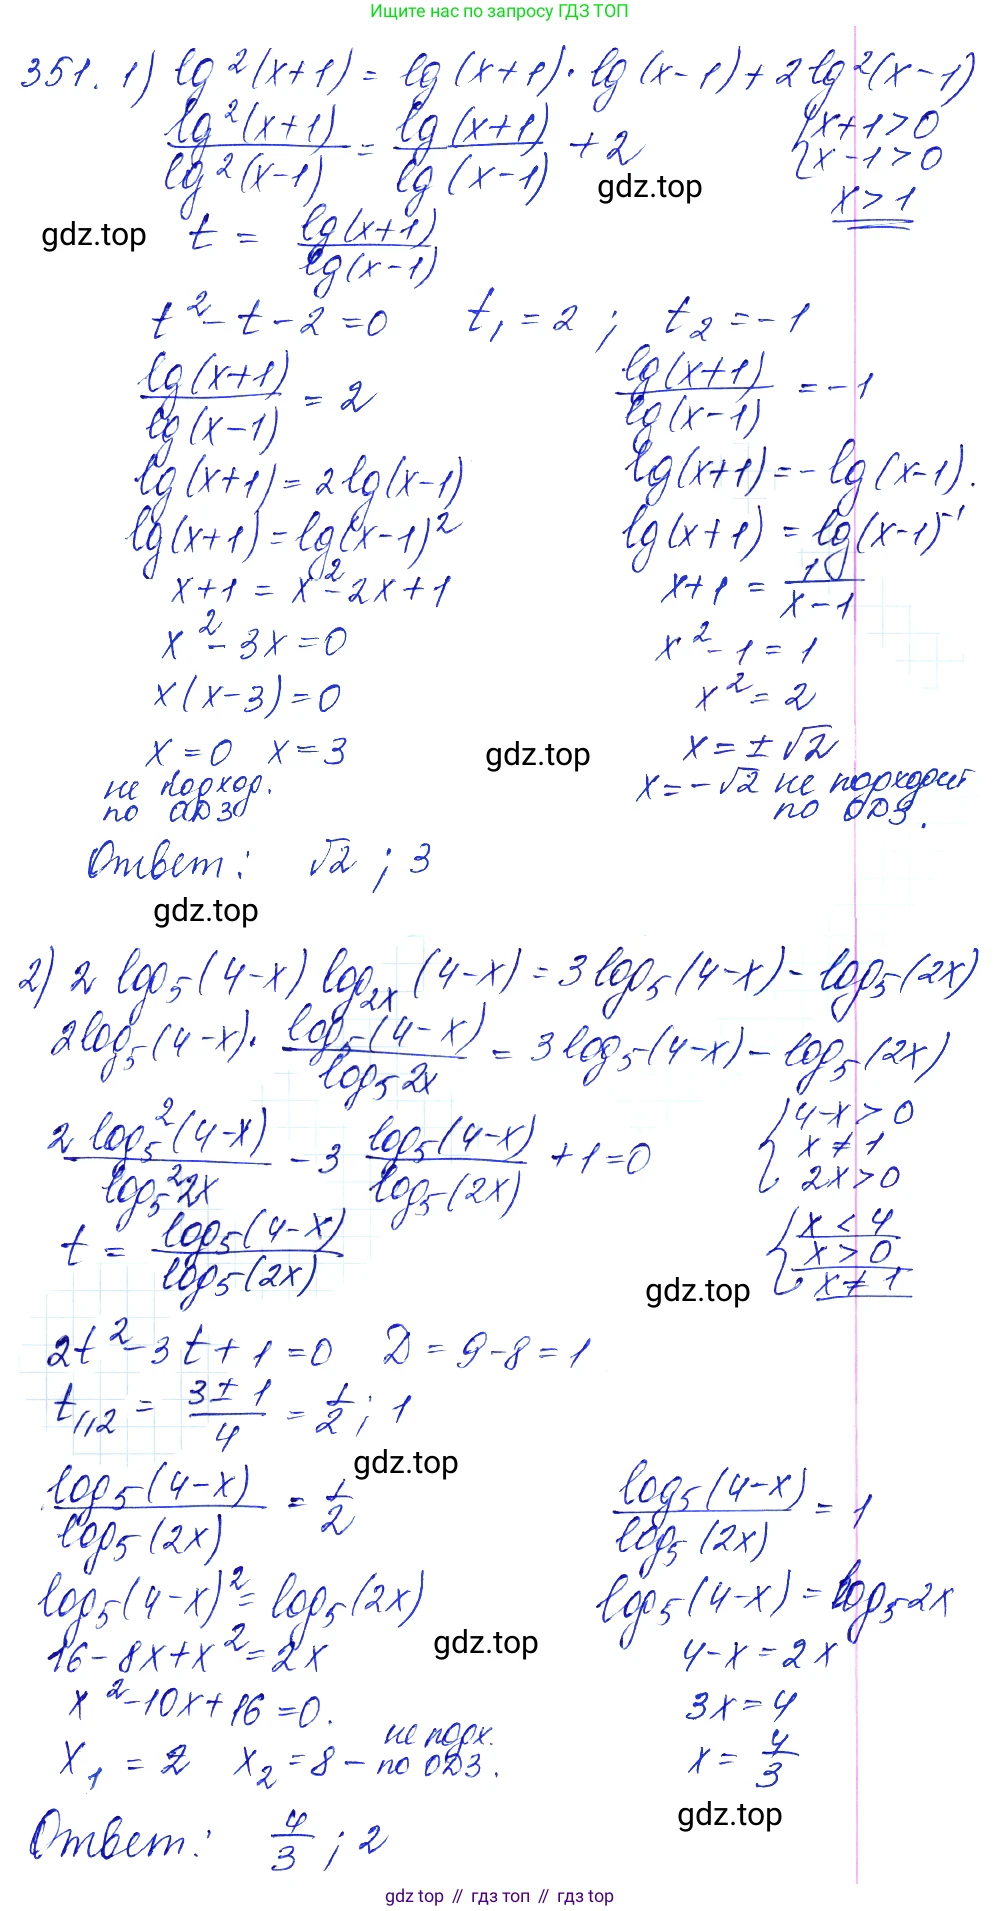 Ищите нас по запросу ГДЗ ТОП
351. 1) lg²(x+1) = lg(x+1)·lg(x-1)+2lg²(x-1)
lg²(x+1)/lg²(x-1) = lg(x+1)/lg(x-1) + 2
{x+1>0
{x-1>0
x>1
gdz.top
gdz.top
t = lg(x+1)/lg(x-1)
t²-t-2=0 t₁=2 ; t₂=-1
lg(x+1)/lg(x-1) = 2
lg(x+1)=2lg(x-1)
lg(x+1)=lg(x-1)²
x+1 = x²-2x+1
x²-3x=0
x(x-3)=0
x=0 x=3
не подход.
по ОДЗ
lg(x+1)/lg(x-1) = -1
lg(x+1)=-lg(x-1).
lg(x+1)=lg(x-1)⁻¹
x+1 = 1/(x-1)
x²-1=1
x²=2
x=±√2
gdz.top
x=-√2 не подходит
по ОДЗ.
Ответ: √2 ; 3
gdz.top
2) 2 log₅(4-x) log₂ₓ(4-x)=3log₅(4-x)-log₅(2x)
2log₅(4-x)· log₅(4-x)/log₅2x = 3log₅(4-x)-log₅(2x)
2 log₅²(4-x)/log₅²2x - 3 log₅(4-x)/log₅(2x) +1=0
{4-x>0
x≠1
2x>0
t = log₅(4-x)/log₅(2x)
{x<4
x>0
x≠1
gdz.top
2t²-3t+1=0 D=9-8=1
t₁,₂ = (3±1)/4 = 1/2; 1
gdz.top
log₅(4-x)/log₅(2x) = 1/2
log₅(4-x)²=log₅(2x)
16-8x+x²=2x
x²-10x+16=0.
x₁=2 x₂=8 - не подх. по ОДЗ.
log₅(4-x)/log₅(2x) = 1
log₅(4-x)=log₅2x
4-x=2x
3x=4
x=4/3
gdz.top
gdz.top
Ответ: 4/3 ; 2
gdz.top // гдз топ // гдз top